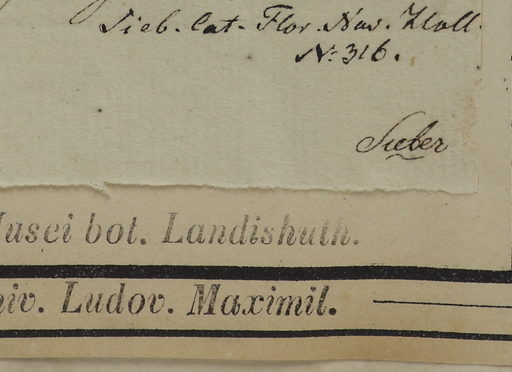 Sieb. Cat. Flor. Nov. Holl.
N: 316.
Sieber
Musei bot. Landishuth.
niv. Ludov. Maximil.